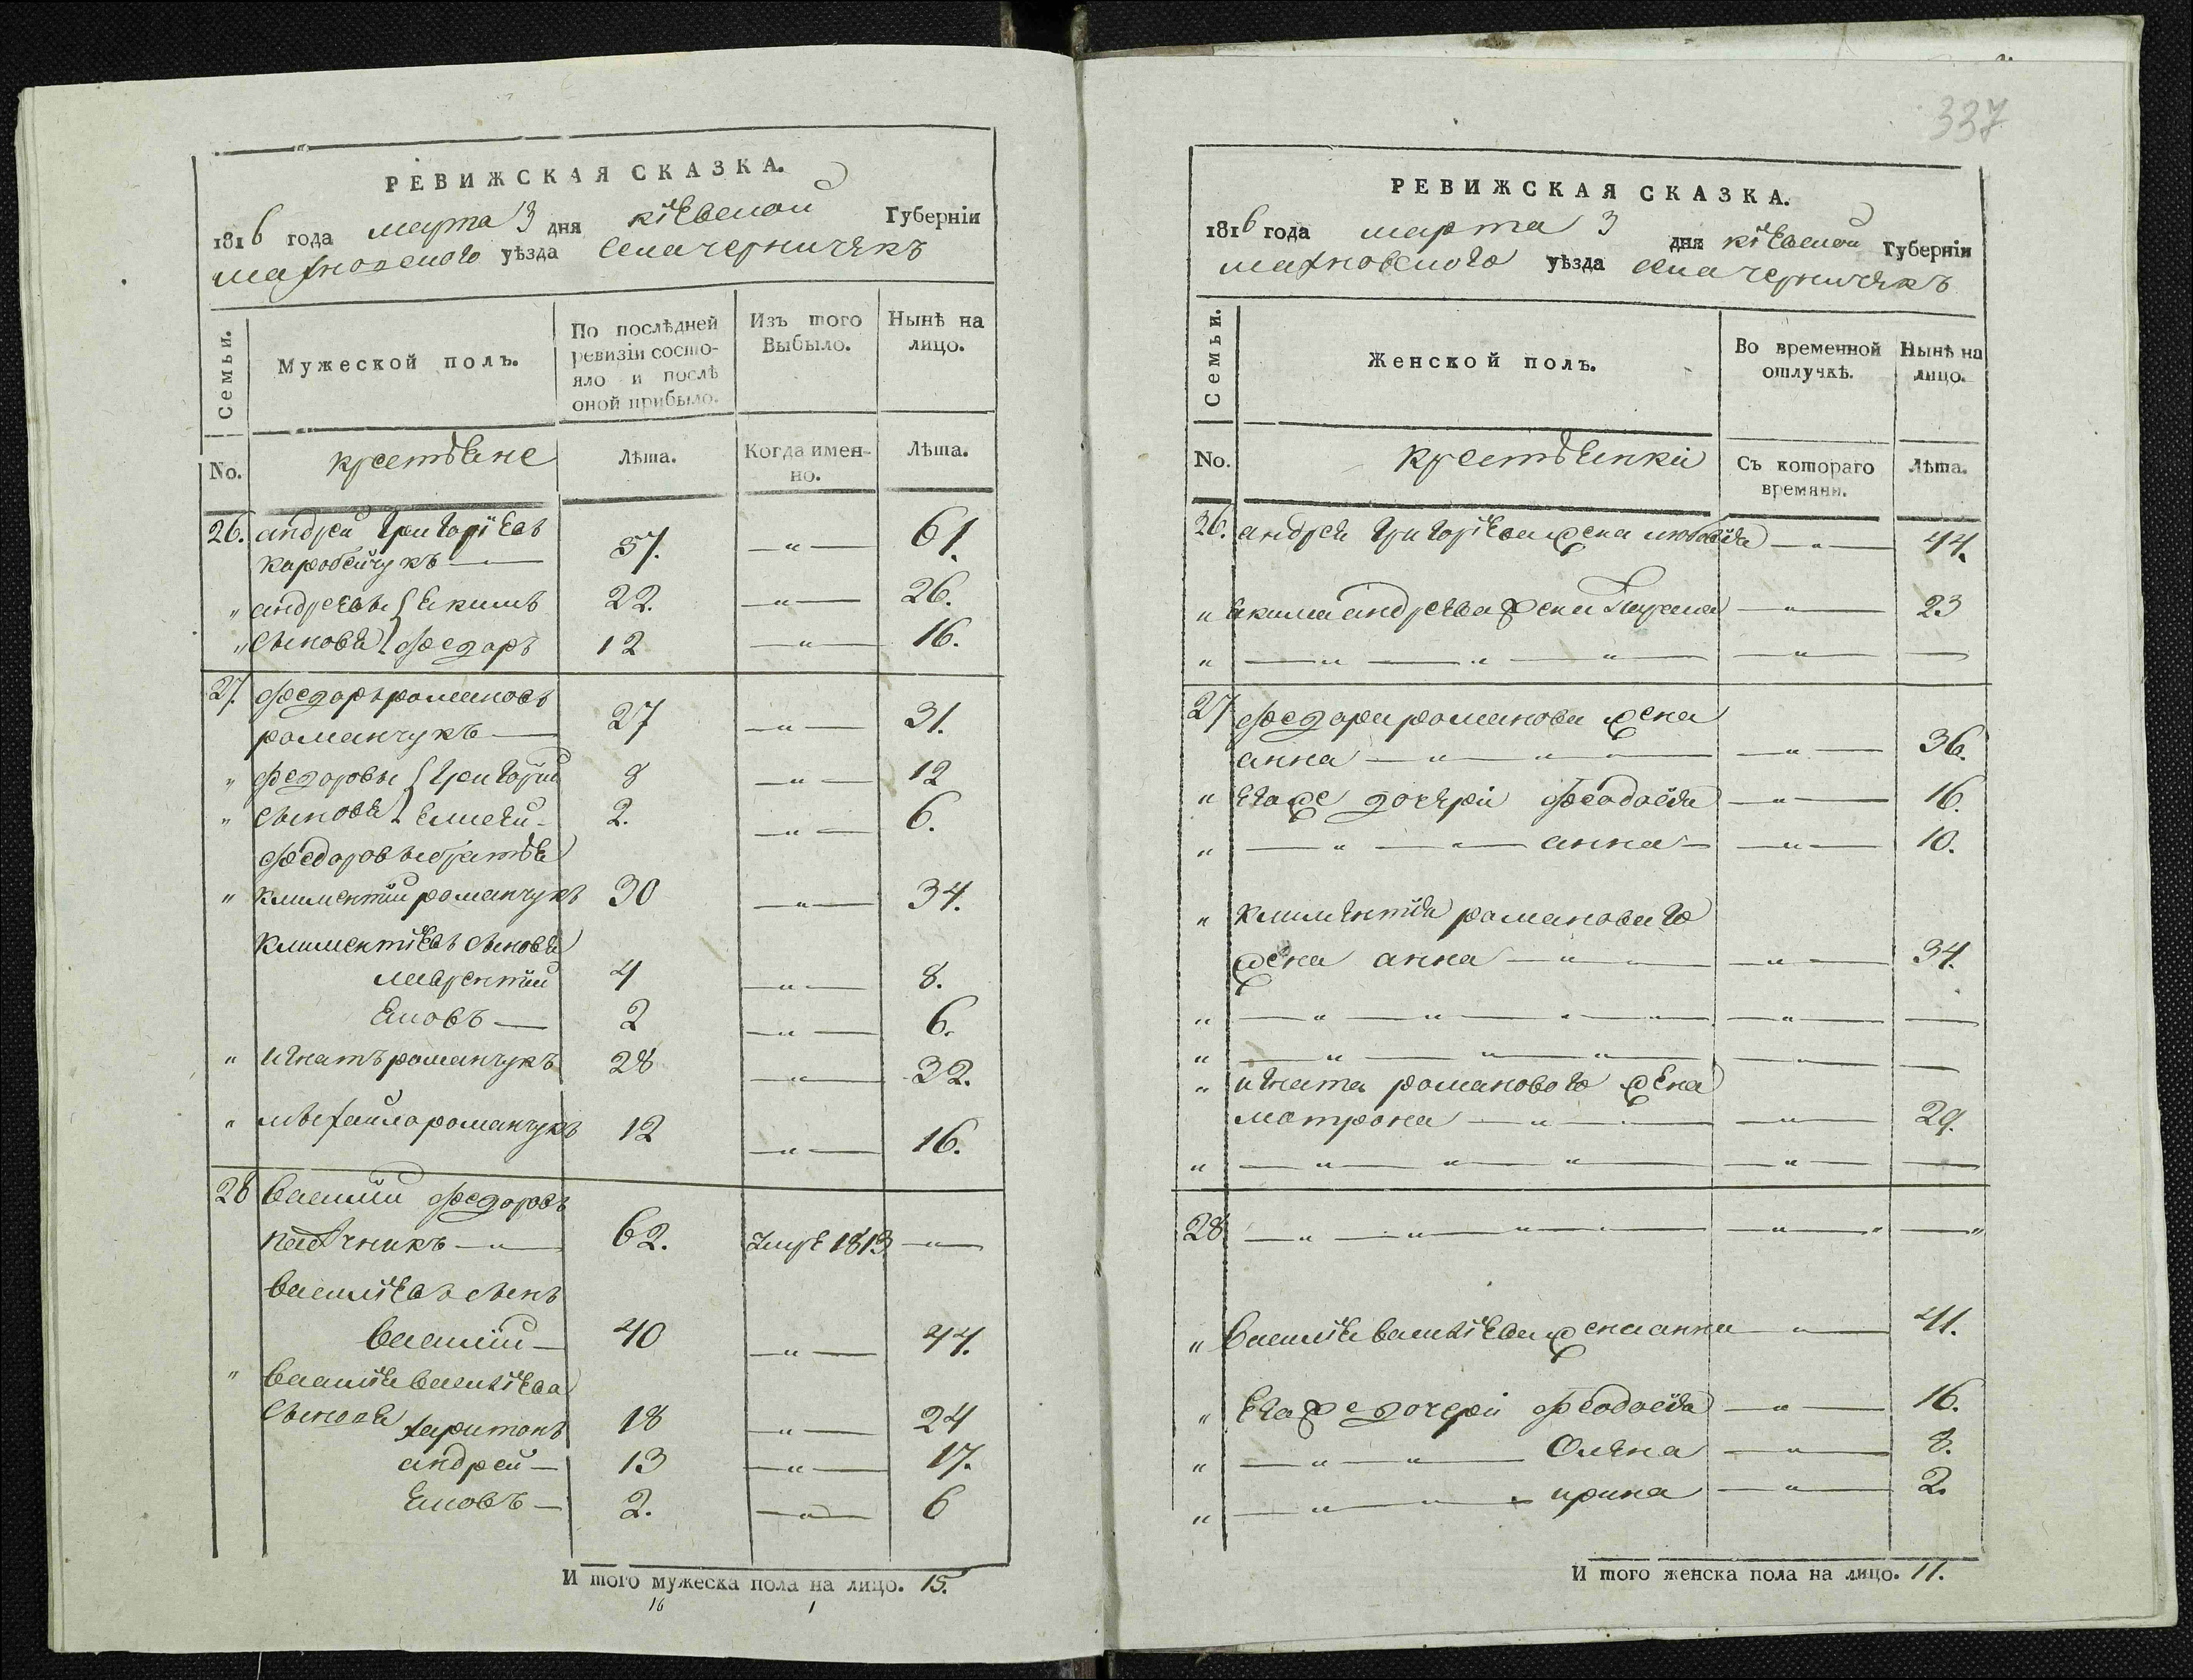 337
РЕВИЖСКАЯ СКАЗКА.
1816 года марта 3 дня кіевской Губерніи
махновского уѣзда села черничекъ
Семьи.
Мужеской полъ.
По послѣдней ревизіи состо-
яло и послѣ
оной прибыло.
Изъ того
Выбыло.
Нынѣ на
лицо.
No.
крестьяне
Лѣта.
Когда имен-
но.
Лѣта.
26. андрей григоріевъ
каробейчукъ — 57. — " — 61.
" андреевы { екимъ 22. — " — 26.
" сыновья { федоръ 12 — " — 16.
27. федоръ романовъ
романчукъ — 27 — " — 31.
" федоровы { григорій 8 — " — 12
" сыновья { елисей - 2. — " — 6.
федоровы братья
" климентій романчукъ 30 — " — 34.
климентіевы сыновья
лаврентій 4 — " — 8.
яковъ — 2 — " — 6.
" игнатъ романчукъ 28 — " — 32.
" михайло романчукъ 12 — " — 16.
28 василій федоровъ
62. умре 1813. — " —
василіевъ сынъ
василій — 40 — " — 44.
" василія василіева
сыновья харитонъ 18 — " — 24
андрей — 13 — " — 17.
яковъ — 2. — " — 6
И того мужеска пола на лицо. 15.
16 1
РЕВИЖСКАЯ СКАЗКА.
1816 года марта 3 дня кіевской Губерніи
махновского уѣзда села черничекъ
Семьи.
Женской полъ.
Во временной
отлучкѣ.
Нынѣ на
лицо.
No.
крестьянки
Съ котораго
времяни.
Лѣта.
26. андрея григоріева жена — " — 44.
" якима андреева жена — " — 23
" — " — " — " — " — —
27 федора романова жена
анна — " — " — — " — 36.
" егоже дочери феодосія — " — 16.
" — " — " — анна — — " — 10.
" климентія романового
жена анна — " — — " — 34.
" — " — " — " — " — " — —
" — " — " — " — " — —
" игната романового жена
мотрона — " — " — — " — 29.
" — " — " — " — " — —
28 — " — " — " — " — " — " — "
" василія василіева жена анна — " — 41.
" егоже дочери феодосія — " — 16.
" — " — " — олена — " — 8.
" — " — " — ирина — " — 2.
И того женска пола на лицо. 11.